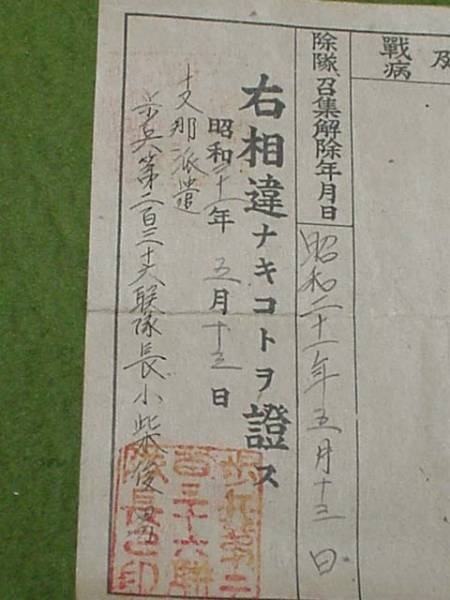 及
戰病
除隊、召集解除年月日
昭和二十一年五月十三日
右相違ナキコトヲ證ス
昭和二十一年 五月十三日
支那派遣
歩兵第二百三十六联隊長小柴俊男
歩兵第二
百三十六聯
隊長之印